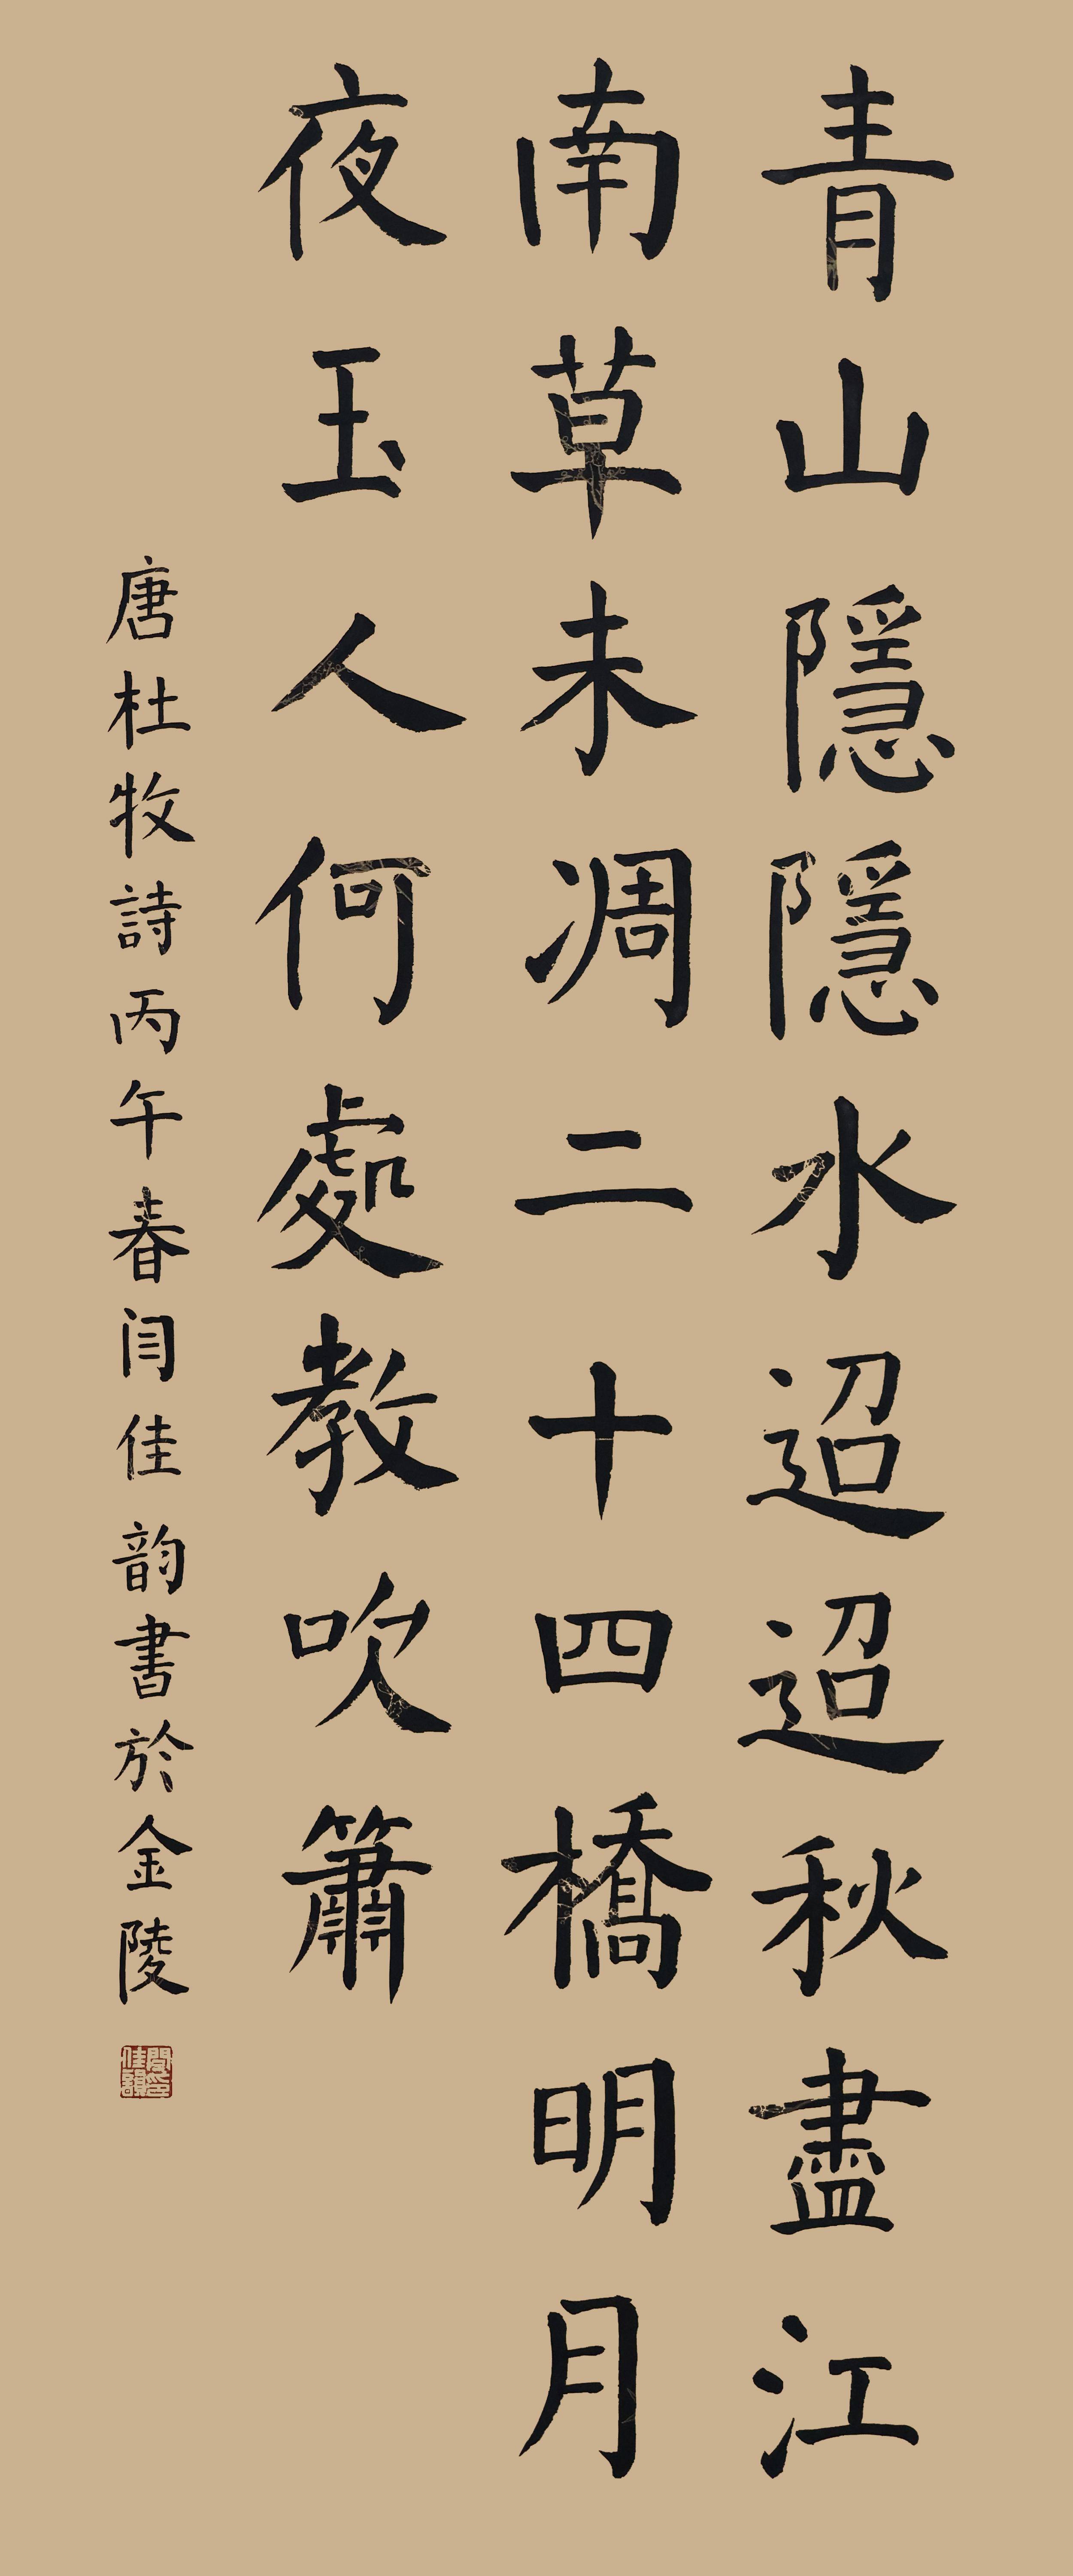 青山隱隱水迢迢秋盡江
南草未凋二十四橋明月
夜玉人何處教吹簫
唐杜牧詩丙午春闫佳韵書於金陵
閆佳韻印